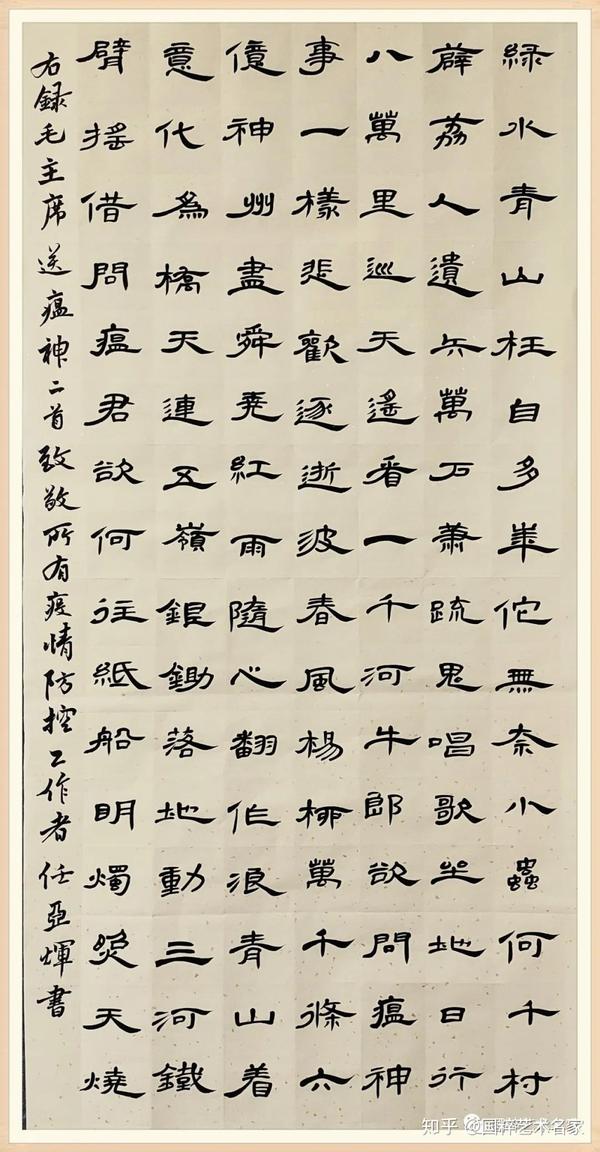 緑水青山枉自多華佗無奈小蟲何千村
薜荔人遺矢萬戶蕭疏鬼唱歌坐地日行
八萬里巡天遙看一千河牛郎欲問瘟神
事一樣悲歡逐逝波春風楊柳萬千條六
億神州盡舜堯紅雨隨心翻作浪青山着
意代為橋天連五嶺銀鋤落地動三河鐵
臂搖借問瘟君欲何往紙船明燭照天燒
右録毛主席送瘟神二首致敬所有疫情防控工作者任亞煇書
知乎 @国粹艺术名家